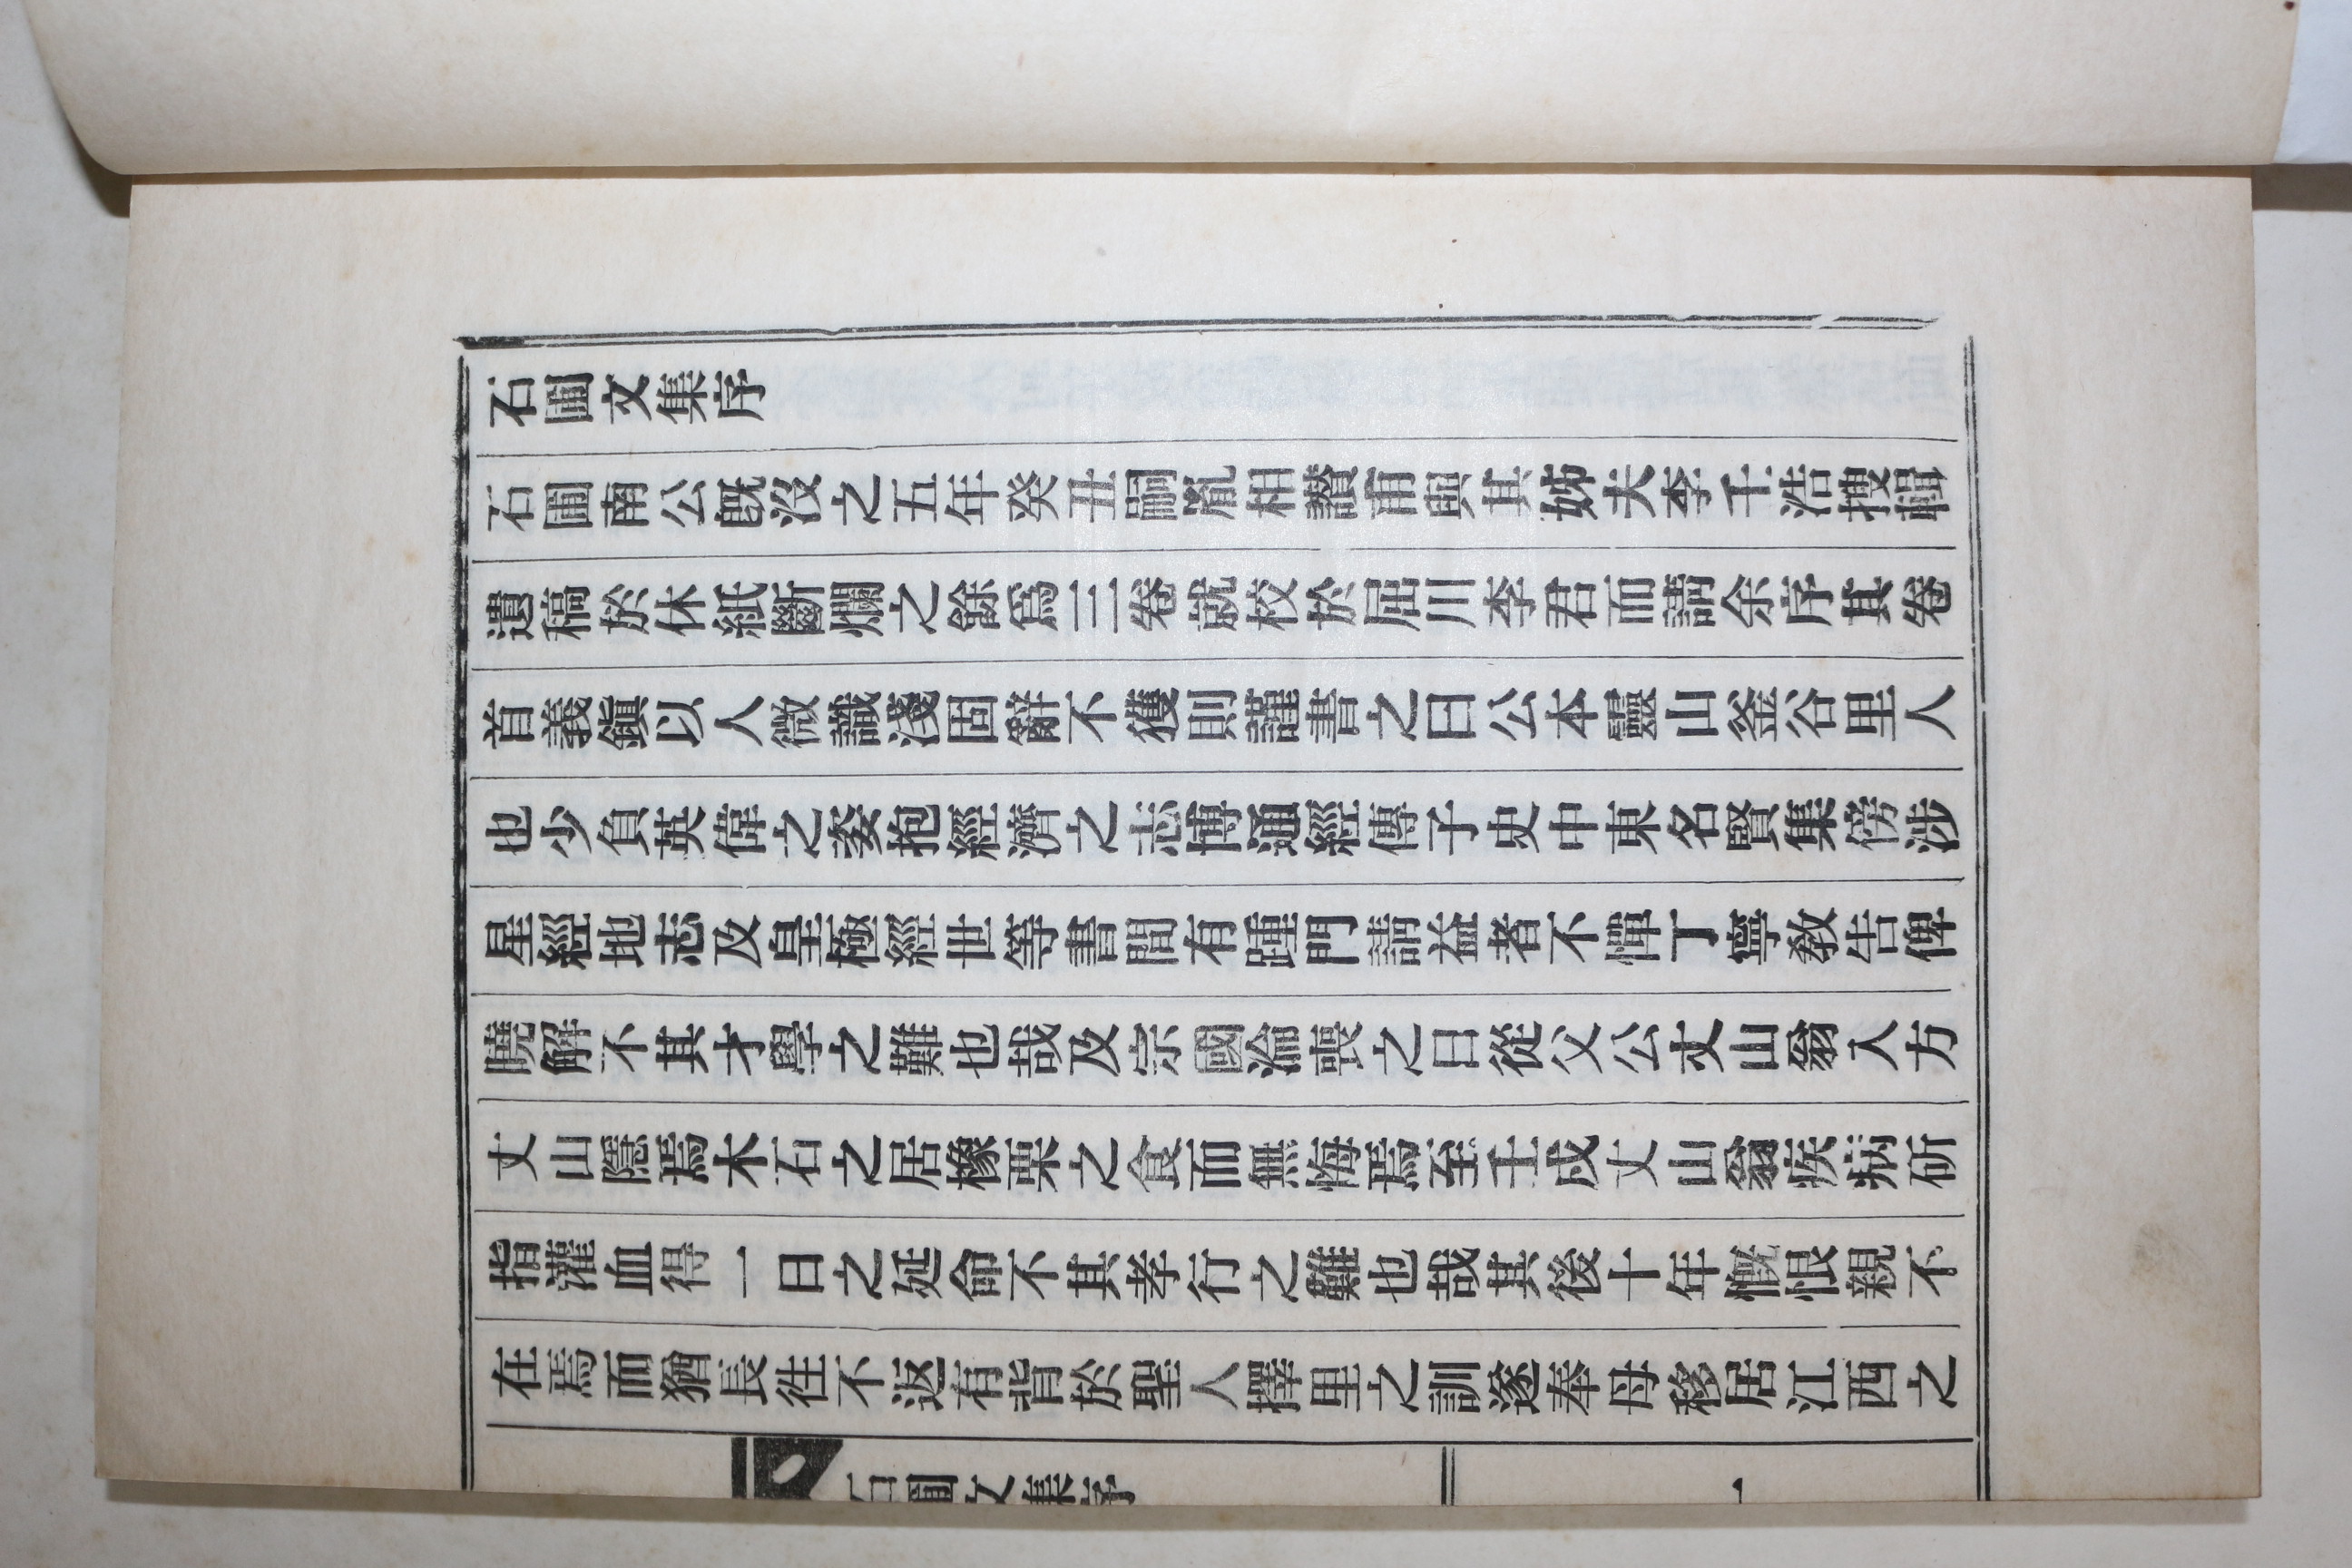 石圃文集序
石圃南公旣沒之五年癸丑嗣胤相瓚甫與其姊夫李千浩搜輯
遺稿於休紙斷爛之餘爲三卷就校於屈川李君而請余序其卷
首義鎭以人微識淺固辭不獲則謹書之曰公本靈山釜谷里人
也少負英偉之姿抱經濟之志博通經傳子史中東名賢集傍涉
星經地志及皇極經世等書間有踵門請益者不憚丁寧敎告俾
曉解不其才學之難也哉及宗國淪喪之日從父公丈山翁入方
丈山隱焉木石之居橡栗之食而無悔焉至壬戌丈山翁疾病斫
指灌血得一日之延命不其孝行之難也哉其後十年慨恨親不
在焉而猶長徃不返有背於聖人擇里之訓遂奉母移居江西之
石圃文集序 一